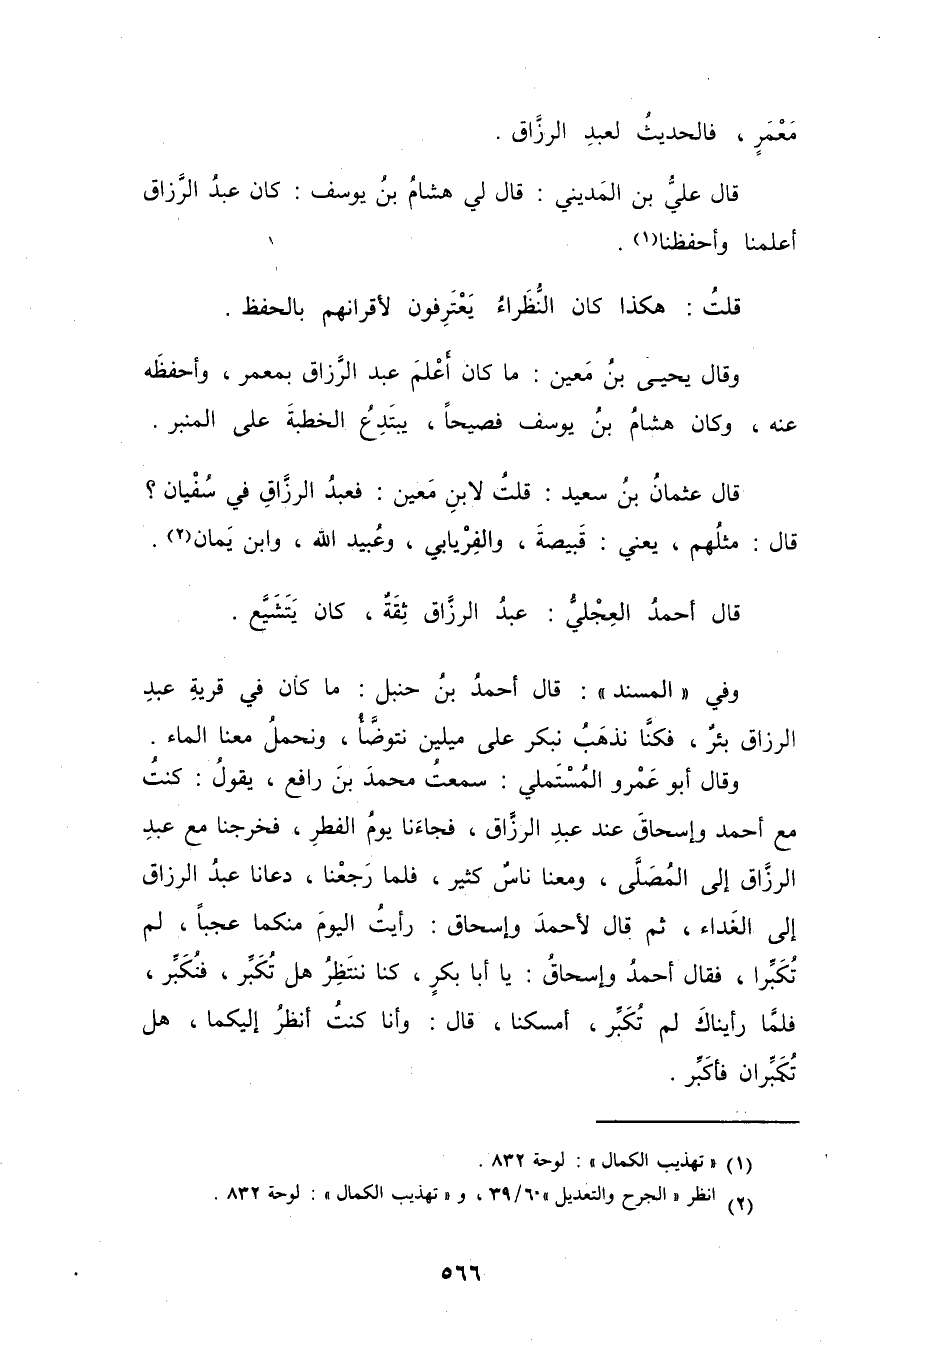 مَعْمَرٍ ، فالحديثُ لعبدِ الرزَّاق .
قال عليُّ بن المَديني : قال لي هشامُ بنُ يوسف : كان عبدُ الرَّزاق
أعلمنا وأحفظنا(١) .
قلتُ : هكذا كان النُّظَراءُ يَعْتَرِفون لأقرانهم بالحفظ .
وقال يحيـى بنُ مَعين : ما كان أَعْلمَ عبد الرَّزاق بمعمر ، وأحفظَه
عنه ، وكان هشامُ بنُ يوسف فصيحاً ، يبتَدِعُ الخطبةَ على المنبر .
قال عثمانُ بنُ سعيد : قلتُ لابنِ مَعين : فعبدُ الرزَّاقِ في سُفْيان ؟
قال : مثلُهم ، يعني : قَبيصةَ ، والفِرْيابي ، وعُبيد الله ، وابن يَمان(٢) .
قال أحمدُ العِجْليُّ : عبدُ الرزَّاق ثِقَةٌ ، كان يَتَشَيَّع .
وفي « المسند » : قال أحمدُ بنُ حنبل : ما كان في قريةِ عبدِ
الرزاق بئرٌ ، فكنَّا نذهَبُ نبكر على ميلين نتوضَّأُ ، ونحملُ معنا الماء .
وقال أبو عَمْرو المُسْتَملي : سمعتُ محمدَ بنَ رافع ، يقولُ : كنتُ
مع أحمد وإسحاقَ عند عبدِ الرزَّاق ، فجاءَنا يومُ الفطرِ ، فخرجنا مع عبدِ
الرزَّاق إلى المُصَلَّى ، ومعنا ناسٌ كثير ، فلما رَجَعْنا ، دعانا عبدُ الرزاق
إلى الغَداء ، ثم قال لأحمدَ وإسحاق : رأيتُ اليومَ منكما عجباً ، لم
تُكَبِّرا ، فقال أحمدُ وإسحاقُ : يا أبا بكرٍ ، كنا ننتَظِرُ هل تُكَبِّر ، فنُكَبِّر ،
فلمَّا رأيناكَ لم تُكَبِّر ، أمسكنا ، قال : وأنا كنتُ أنظرُ إليكما ، هل
تُكَبِّران فأكَبِّر .
(١) « تهذيب الكمال » : لوحة ٨٣٢ .
(٢) انظر « الجرح والتعديل »٣٩/٦٠ ، و « تهذيب الكمال » : لوحة ٨٣٢ .
٥٦٦